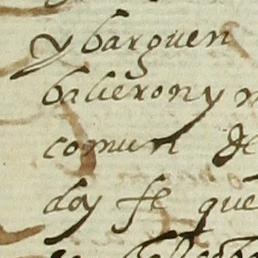 ybarguen
balieron y
comun de
doy fe que